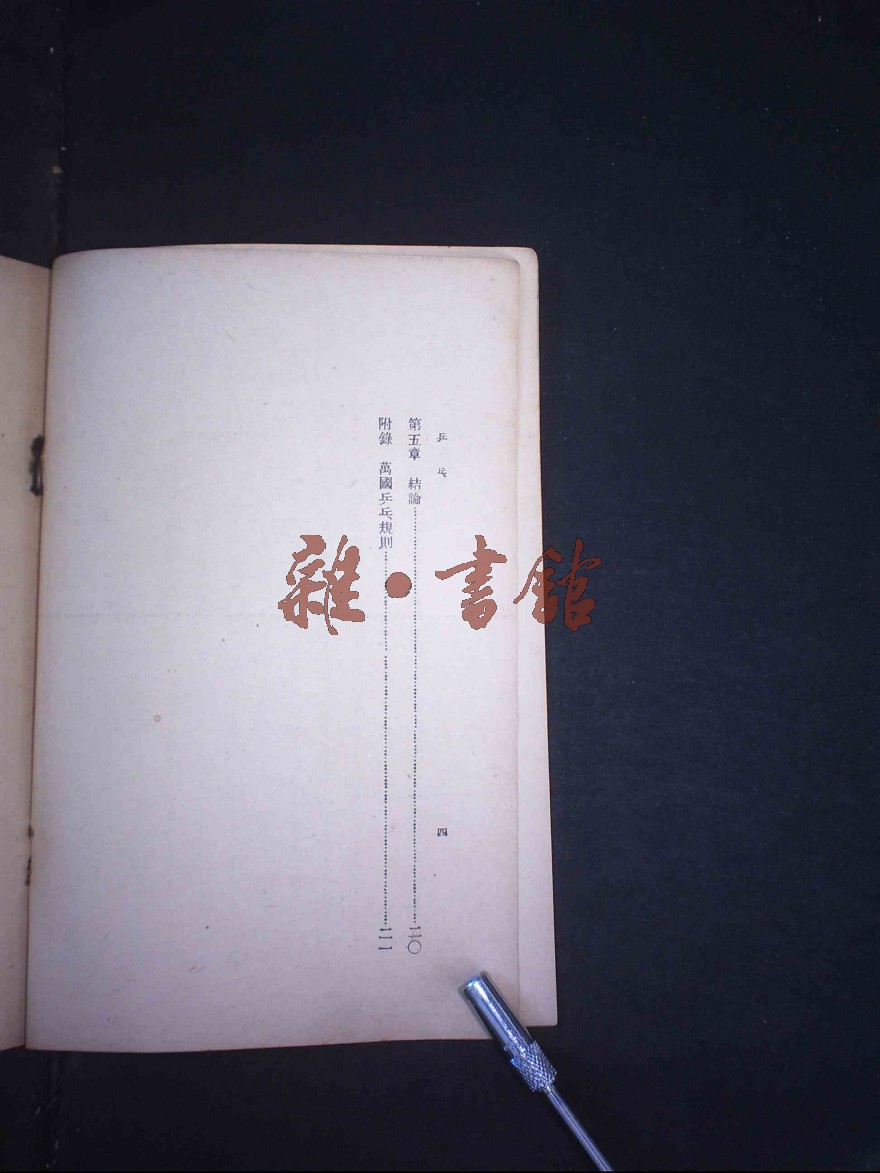 乒乓 四
第五章 結論……二〇
附錄 萬國乒乓規則……二一
雜●書館